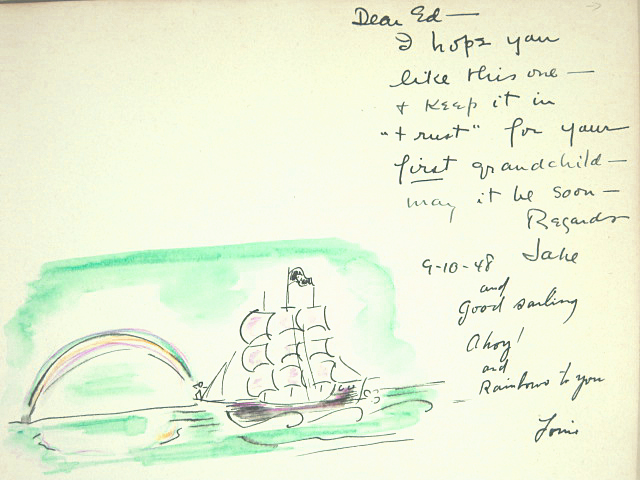 Dear Ed —
I hope you
like this one —
& Keep it in
"trust" for your
first grandchild —
may it be soon —
Regards
Jake
9-10-48
and
Good sailing
Ahoy!
and
Rainbows to you